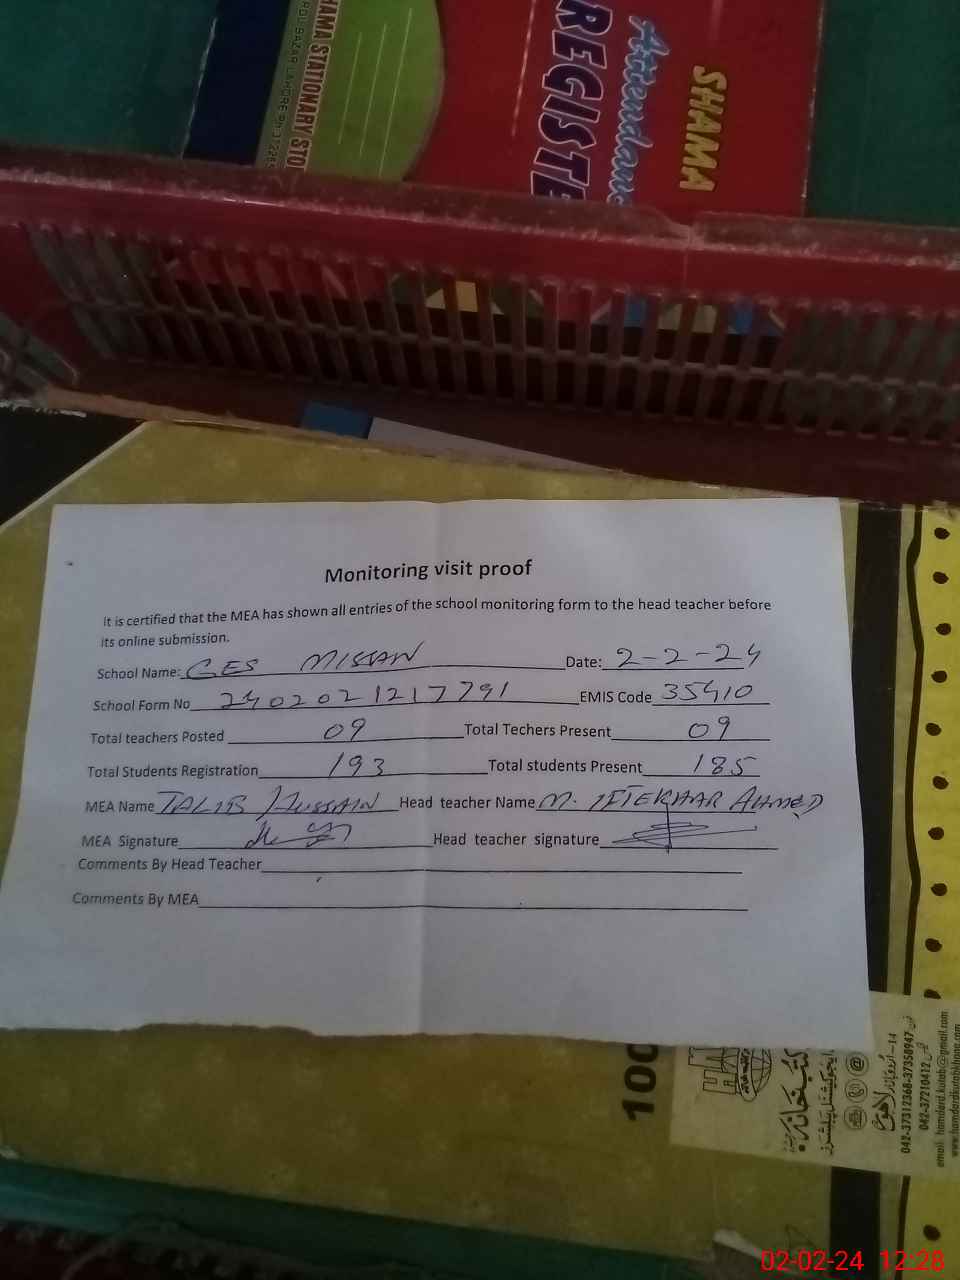 SHAMA
Attendanc
REGISTE
HAMA STATIONARY STO
Monitoring visit proof
It is certified that the MEA has shown all entries of the school monitoring form to the head teacher before
its online submission.
School Name: GES MISSAN Date: 2-2-24
School Form No 2402021217791 EMIS Code 35410
Total teachers Posted 09 Total Techers Present 09
Total Students Registration 193 Total students Present 185
MEA Name TALIB HUSSAIN Head teacher Name M. IFTEKHAR AHMED
MEA Signature Head teacher signature
Comments By Head Teacher
Comments By MEA
100
کتب خانہ
042-37312368-37350947
042-37210412
email: hamdard.kutab@gmail.com
02-02-24 12:28